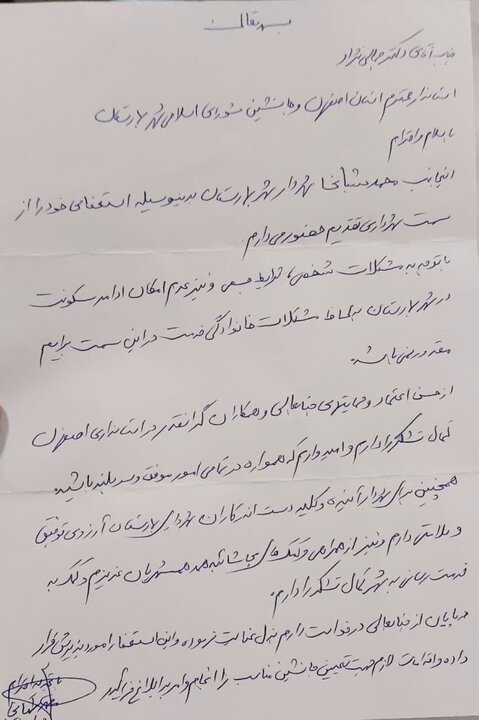 بسمه تعالی
جناب آقای دکتر جمالی نژاد
استاندار محترم استان اصفهان و جانشین شورای اسلامی شهر بهارستان
با سلام و احترام
اینجانب محمد شهردار شهر بهارستان بدینوسیله استعفای خود را از
سمت شهرداری تقدیم حضور می دارم
با توجه به مشکلات شخصی، شرایط جسمی و نیز عدم امکان ادامه سکونت
در شهر بهارستان به لحاظ مشکلات خانوادگی خدمت در این سمت برایم
مقدور نمی باشد.
از حسن اعتماد و حمایتهای جنابعالی و همکاران گرانقدر در استانداری اصفهان
کمال تشکر را دارم و امیدوارم که همواره در تمامی امور موفق و سربلند باشید.
همچنین برای شهردار آینده و کلیه دست اندرکاران شهرداری بهارستان آرزوی توفیق
و سلامتی دارم و نیز از همراهی و کمک های بی شائبه همه همشهریان عزیزم و کمک به
خدمت رسانی به شهر کمال تشکر را دارم.
در پایان از جنابعالی درخواست دارم بذل عنایت فرموده و این استعفا را مورد پذیرش قرار
داده و اقدامات لازم جهت تعیین جانشین مناسب را انجام و امر به ابلاغ فرمائید
با تجدید احترام